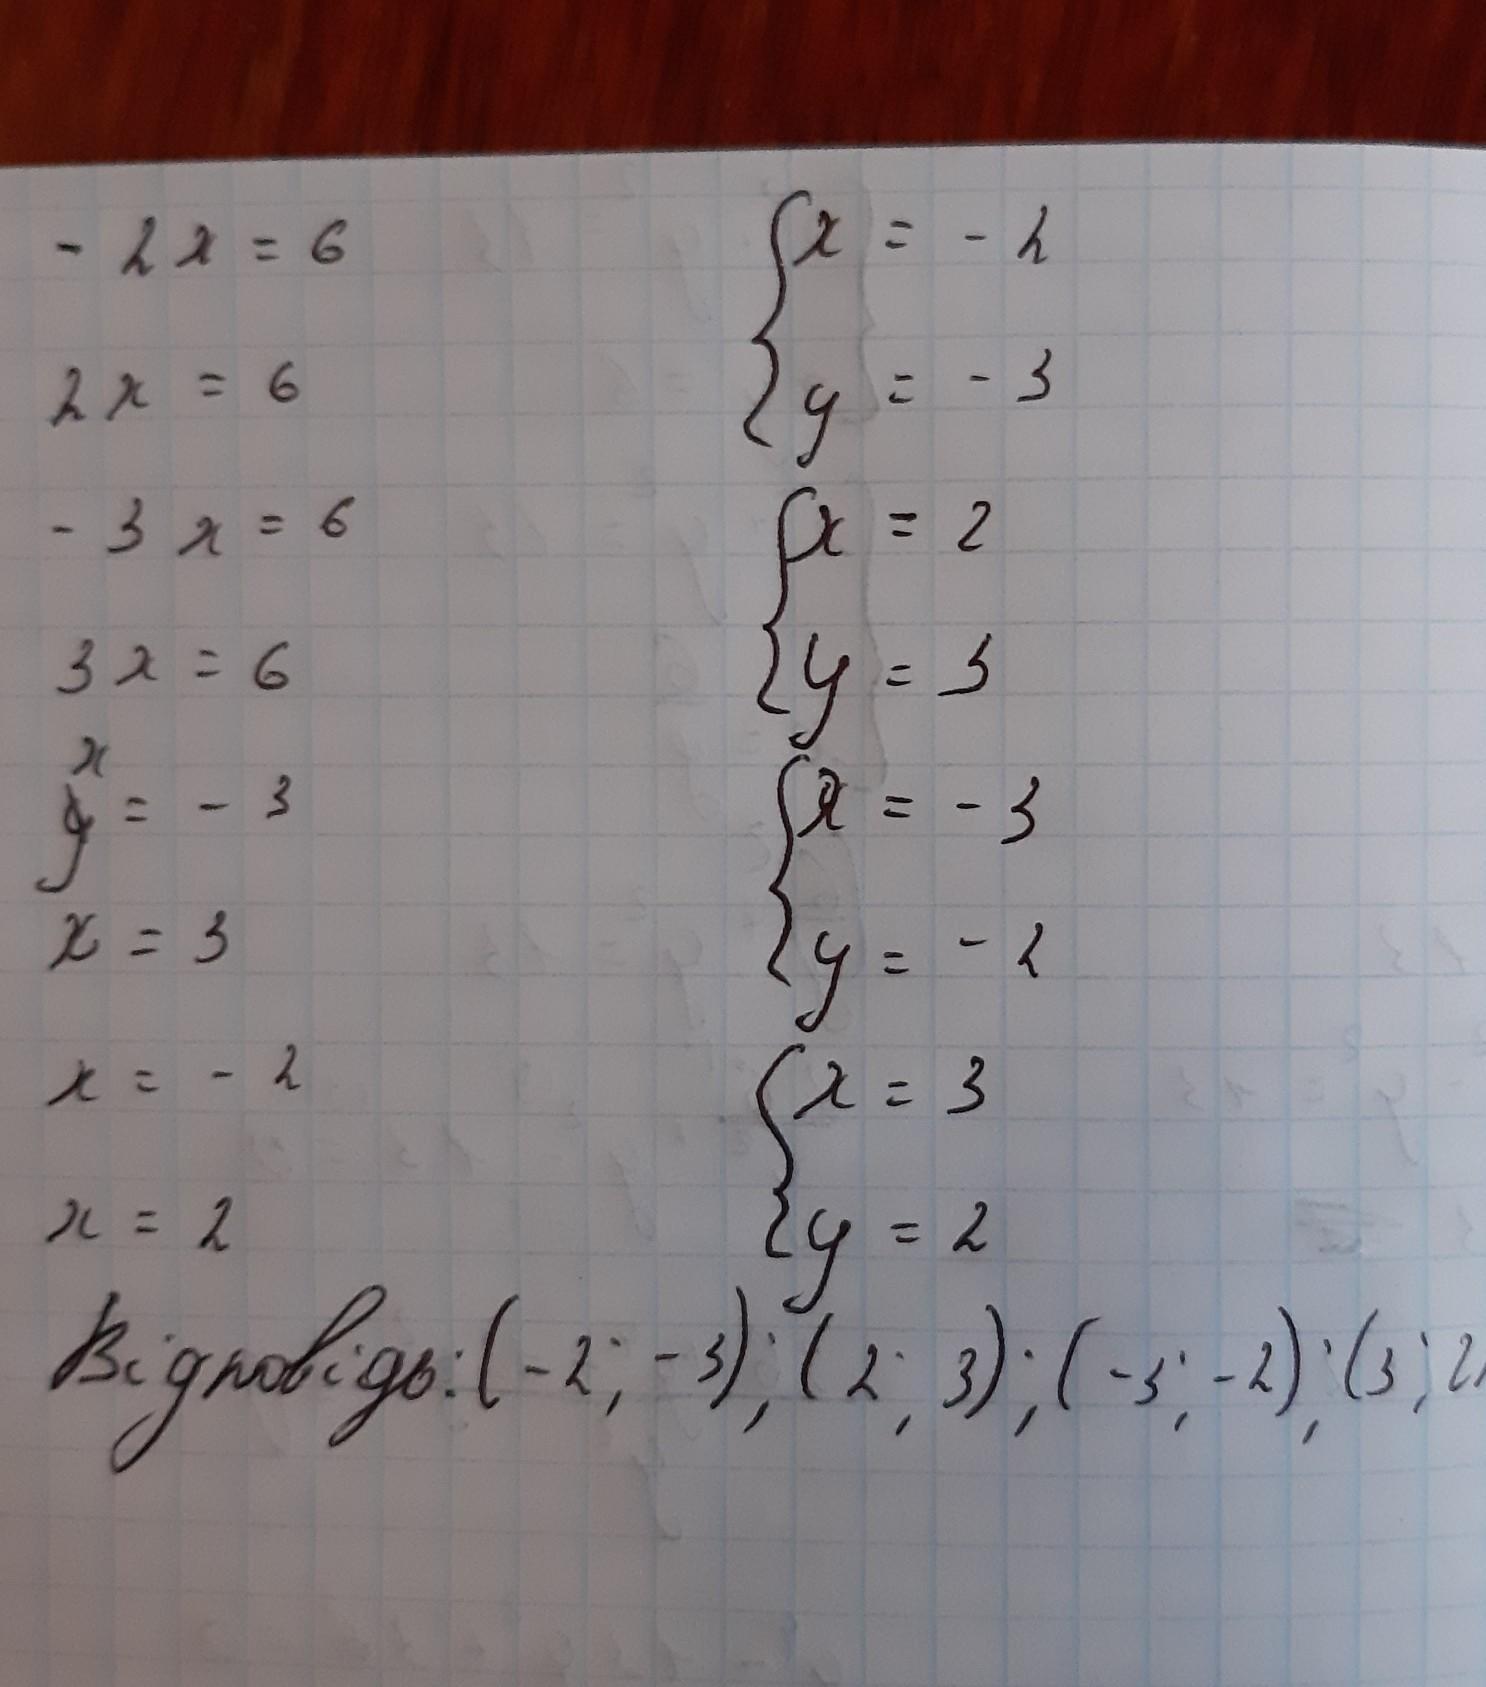 - 2x = 6
2x = 6
- 3x = 6
3x = 6
x
y = - 3
x = 3
x = - 2
x = 2
{ x = - 2
y = - 3
{ x = 2
y = 3
{ x = - 3
y = - 2
{ x = 3
y = 2
Відповідь: (-2; -3); (2; 3); (-3; -2); (3; 2)